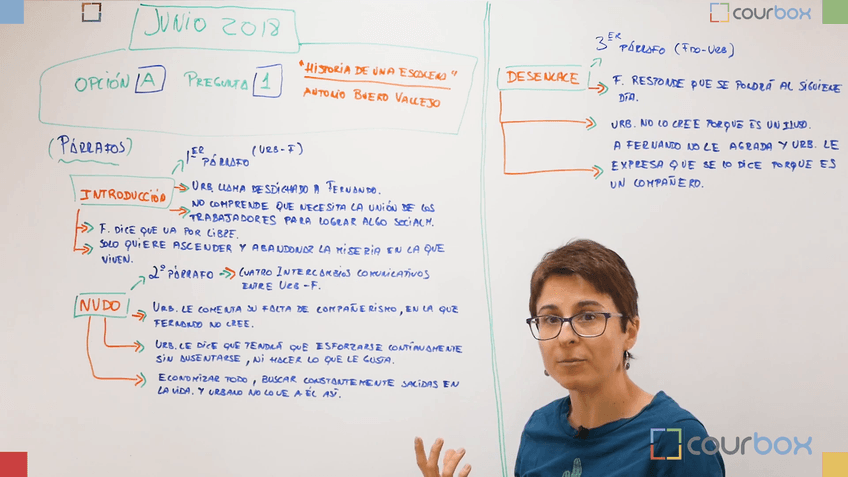 JUNIO 2018
OPCIÓN A PREGUNTA 1
"HISTORIA DE UNA ESCALERA"
ANTONIO BUERO VALLEJO
(PÁRRAFOS)
1ER PÁRRAFO (URB-F)
INTRODUCCIÓN
URB. LLAMA DESDICHADO A FERNANDO.
NO COMPRENDE QUE NECESITA LA UNIÓN DE LOS
TRABAJADORES PARA LOGRAR ALGO SOCIALM.
F. DICE QUE VA POR LIBRE.
SOLO QUIERE ASCENDER Y ABANDONAR LA MISERIA EN LA QUE
VIVEN.
2º PÁRRAFO CUATRO INTERCAMBIOS COMUNICATIVOS
ENTRE URB-F.
NUDO
URB. LE COMENTA SU FALTA DE COMPAÑERISMO, EN LA QUE
FERNANDO NO CREE.
URB. LE DICE QUE TENDRÁ QUE ESFORZARSE CONTINUAMENTE
SIN AUSENTARSE, NI HACER LO QUE LE GUSTA.
ECONOMIZAR TODO, BUSCAR CONSTANTEMENTE SALIDAS EN
LA VIDA. Y URBANO NO LO VE A ÉL ASÍ.
3ER PÁRRAFO (FDO-URB)
DESENLACE
F. RESPONDE QUE SE PONDRÁ AL SIGUIENTE
DÍA.
URB. NO LO CREE PORQUE ES UN ILUSO.
A FERNANDO NO LE AGRADA Y URB. LE
EXPRESA QUE SE LO DICE PORQUE ES
UN COMPAÑERO.
courbox
courbox